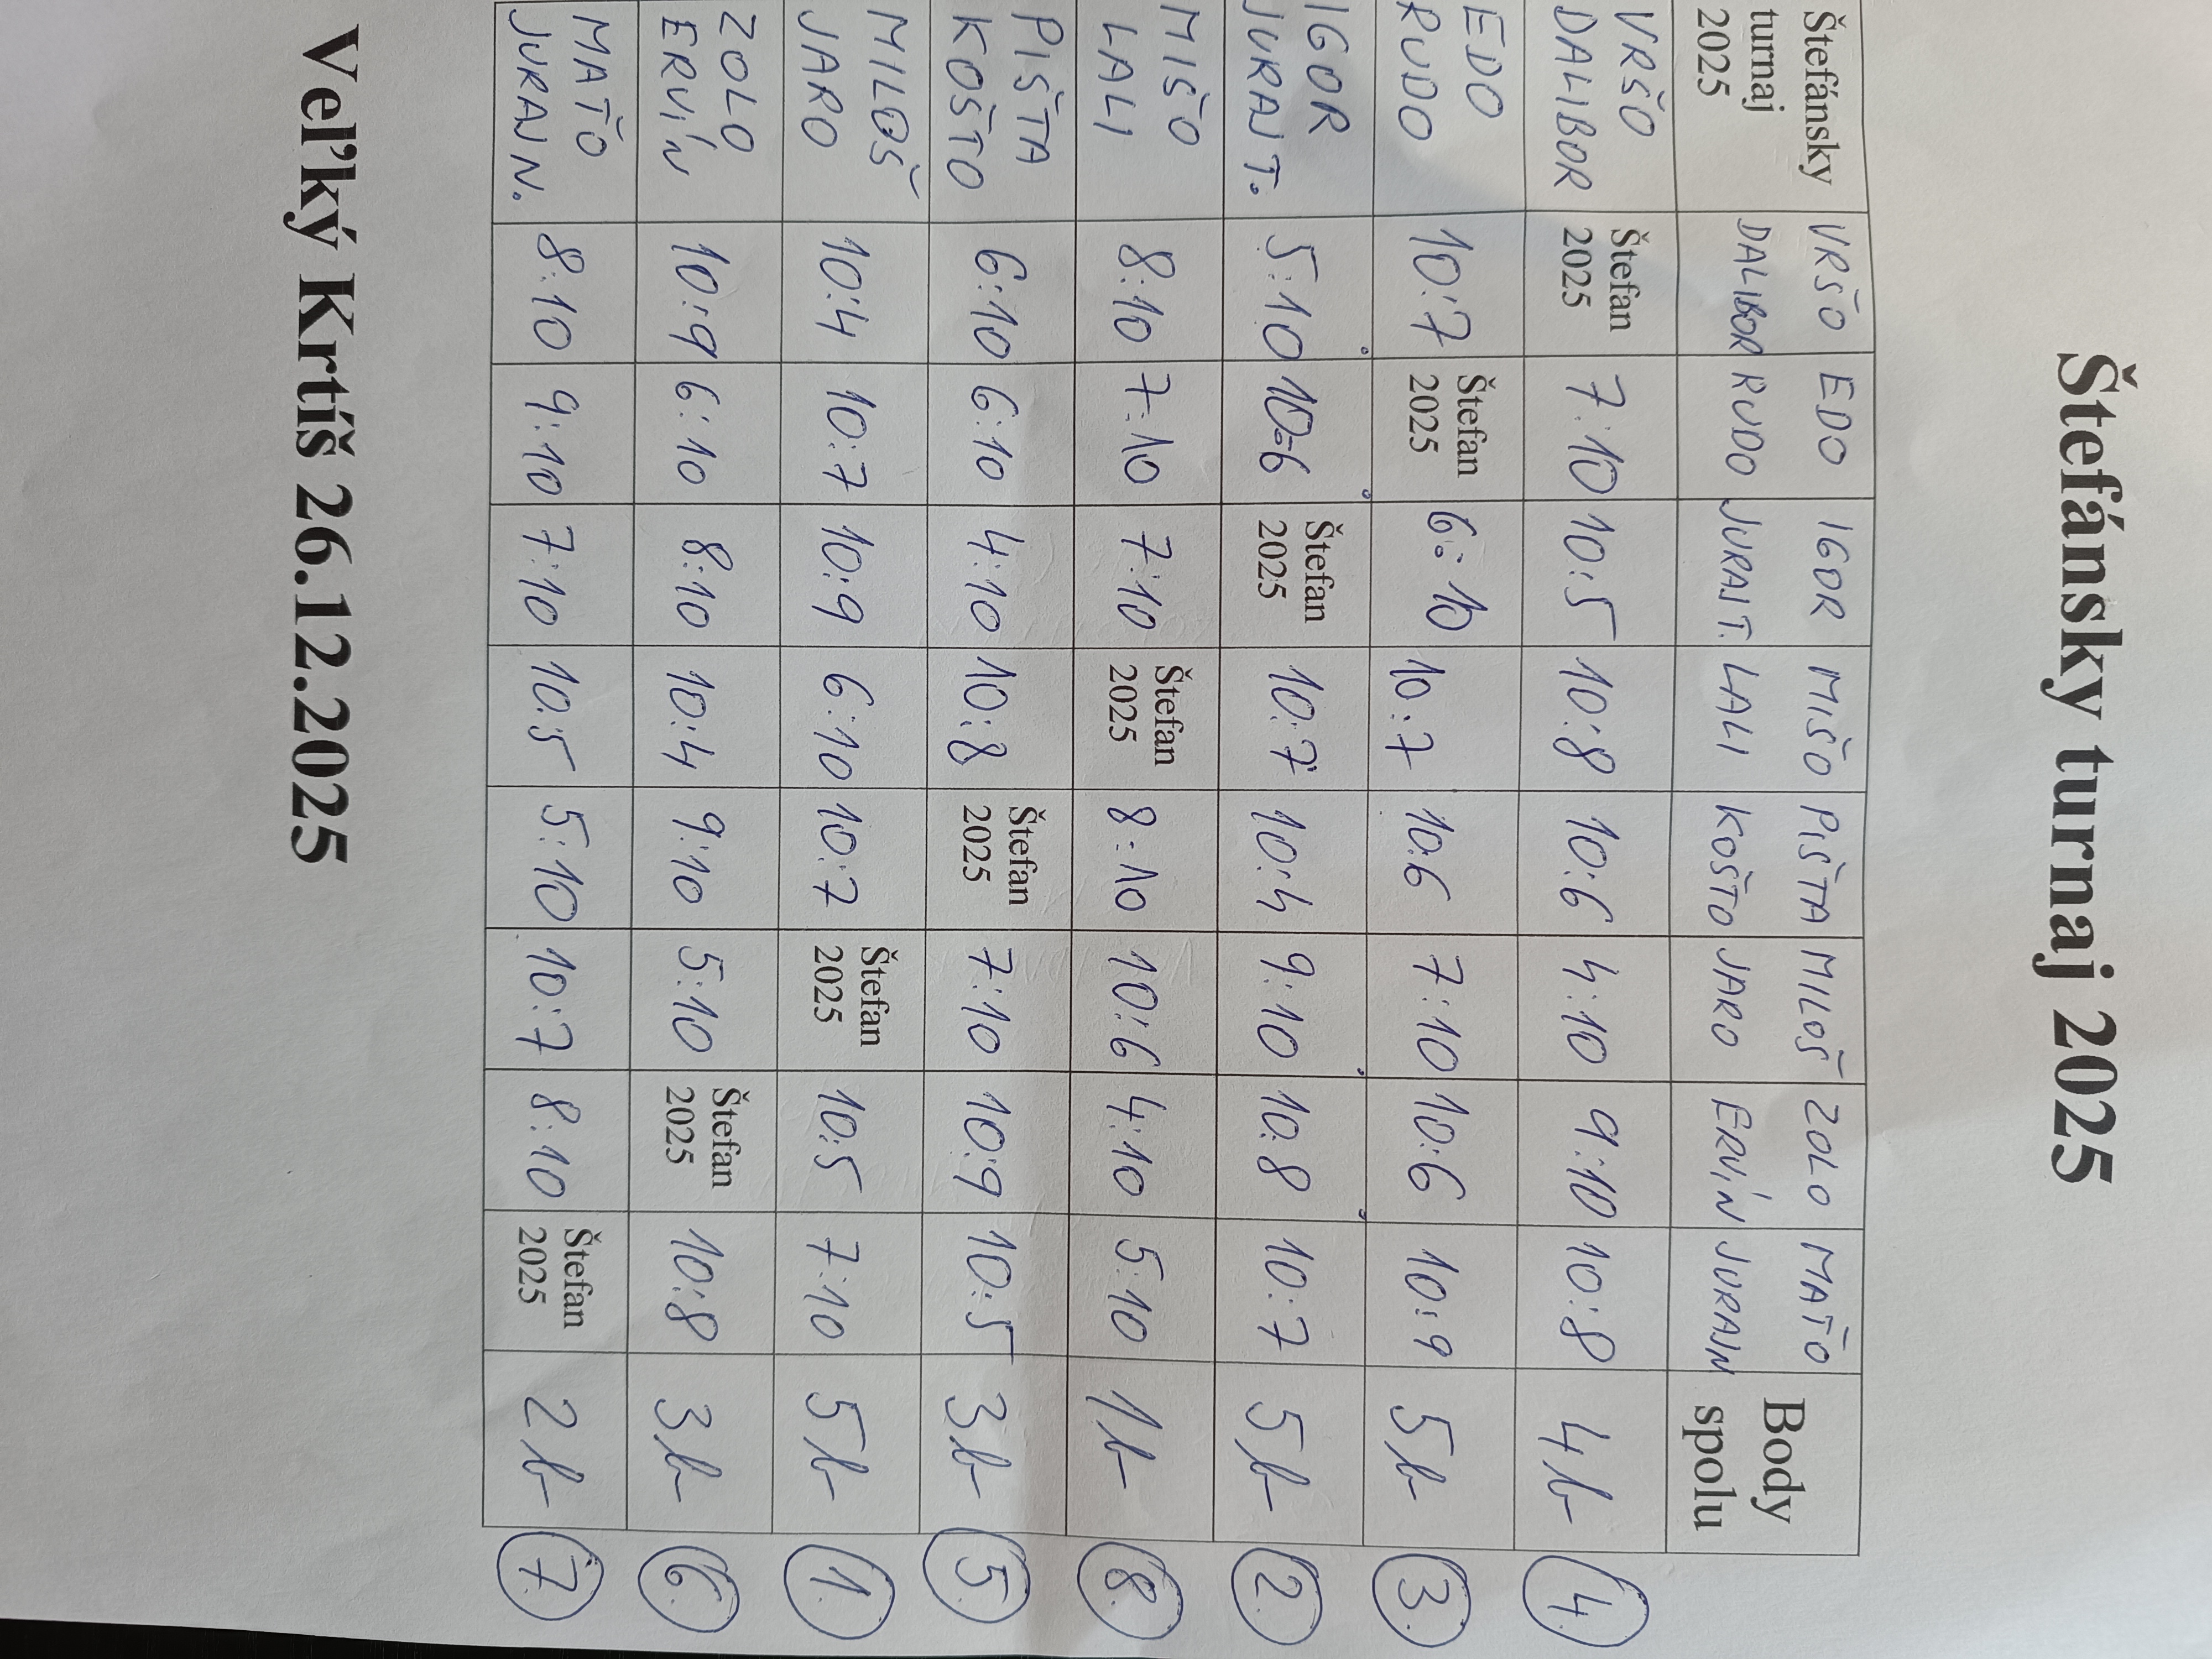 Štefánsky turnaj 2025
Štefánsky turnaj 2025 VRŠO DALIBOR EDO RUDO IGOR JURAJ T. MIŠO LALI PIŠTA KOŠTO MILOŠ JARO ZOLO ERVÍN MAŤO JURAJ N Body spolu
VRŠO DALIBOR Štefan 2025 7:10 10:5 10:8 10:6 4:10 9:10 10:8 4b 4.
EDO RUDO 10:7 Štefan 2025 6:10 10:7 10:6 7:10 10:6 10:9 5b 3.
IGOR JURAJ T. 5:10 10:6 Štefan 2025 10:7 10:4 9:10 10:8 10:7 5b 2.
MIŠO LALI 8:10 7:10 7:10 Štefan 2025 8:10 10:6 4:10 5:10 1b 8.
PIŠTA KOŠTO 6:10 6:10 4:10 10:8 Štefan 2025 7:10 10:9 10:5 3b 5.
MILOŠ JARO 10:4 10:7 10:9 6:10 10:7 Štefan 2025 10:5 7:10 5b 1.
ZOLO ERVÍN 10:9 6:10 8:10 10:4 9:10 5:10 Štefan 2025 10:8 3b 6.
MAŤO JURAJ N. 8:10 9:10 7:10 10:5 5:10 10:7 8:10 Štefan 2025 2b 7.
Veľký Krtíš 26.12.2025